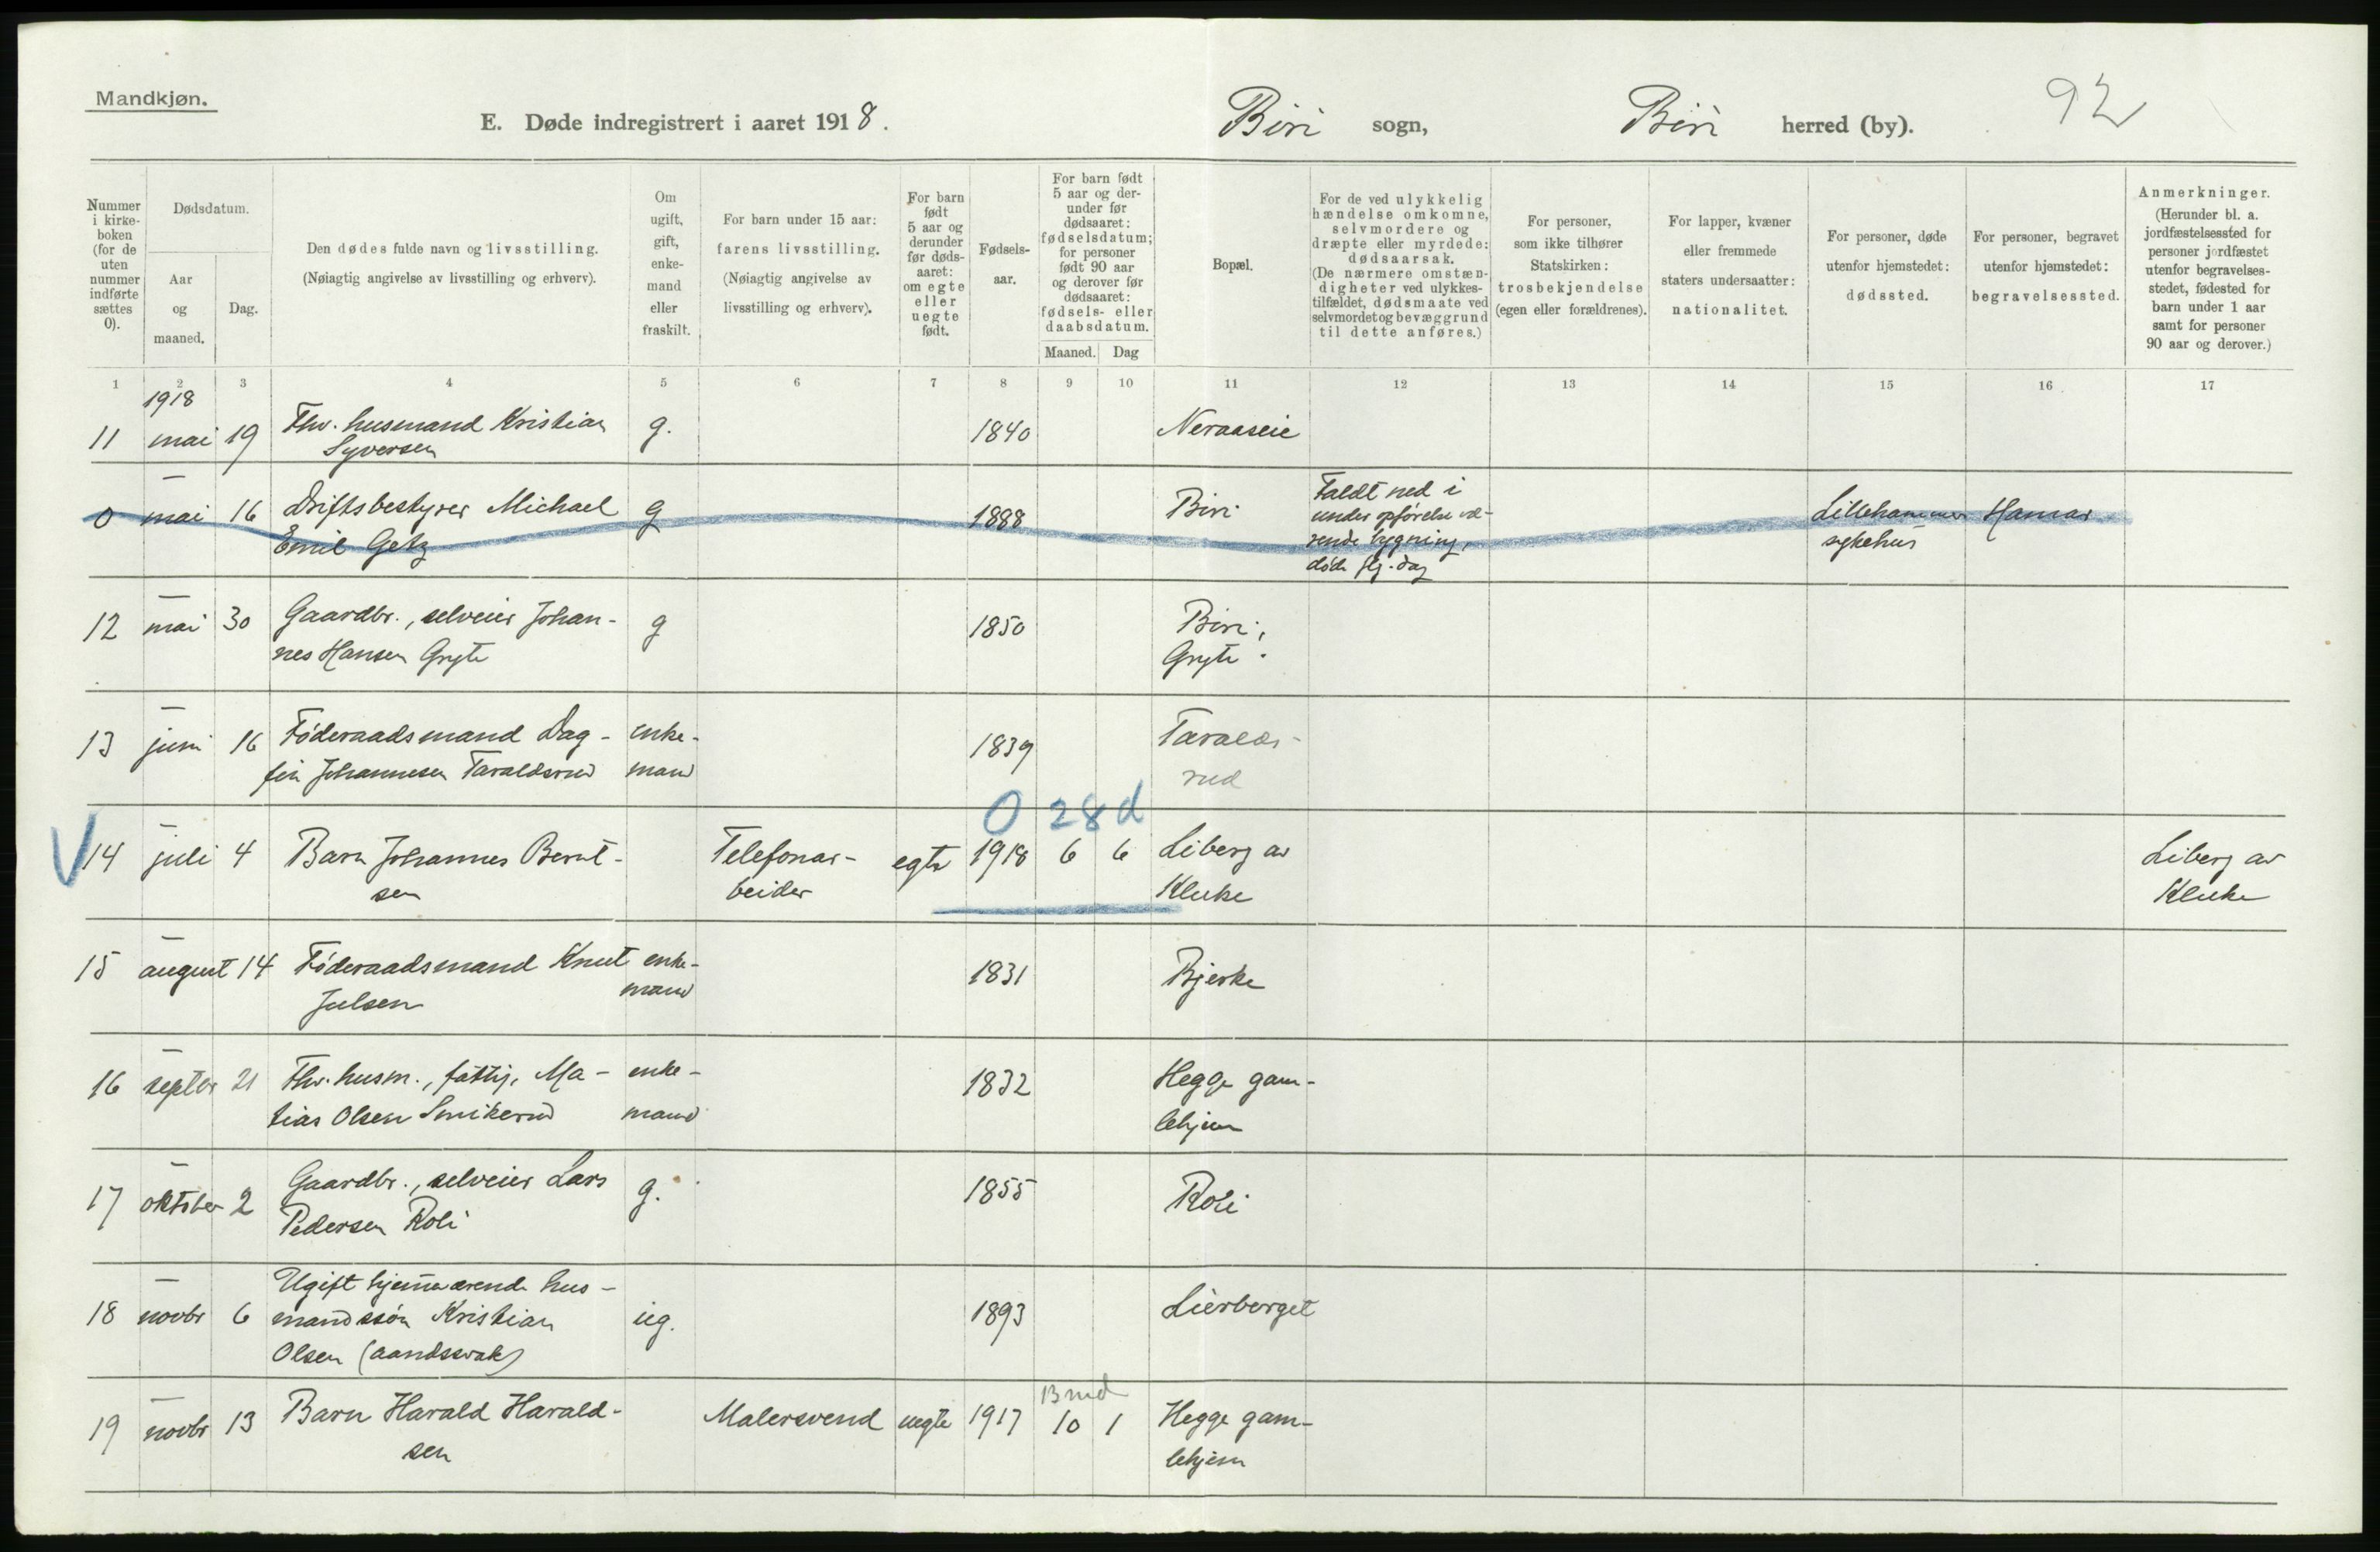 Mandkjøn.
E. Døde indregistrert i aaret 1918.
Biri sogn,
Biri herred (by).
92
Nummer i kirke-boken (for de uten nummer indførte sættes 0).
Dødsdatum.
Aar og maaned.
Dag.
Den dødes fulde navn og livsstilling.
(Nøiagtig angivelse av livsstilling og erhverv).
Om ugift, gift, enke-mand eller fraskilt.
For barn under 15 aar: farens livsstilling.
(Nøiagtig angivelse av livsstilling og erhverv).
For barn født 5 aar og derunder før døds-aaret: om egte eller uegte født.
Fødsels-aar.
For barn født 5 aar og der-under før dødsaaret: fødselsdatum; for personer født 90 aar og derover før dødsaaret: fødsels- eller daabsdatum.
Maaned. Dag
Bopæl.
For de ved ulykkelig hændelse omkomne, selvmordere og dræpte eller myrdede: dødsaarsak.
(De nærmere omstæn-digheter ved ulykkes-tilfældet, dødsmaate ved selvmordet og bevæggrund til dette anføres.)
For personer, som ikke tilhører Statskirken: trosbekjendelse (egen eller forældrenes).
For lapper, kvæner eller fremmede staters undersaatter: nationalitet.
For personer, døde utenfor hjemstedet: dødssted.
For personer, begravet utenfor hjemstedet: begravelsessted.
Anmerkninger.
(Herunder bl. a. jordfæstelsessted for personer jordfæstet utenfor begravelses-stedet, fødested for barn under 1 aar samt for personer 90 aar og derover.)
1 2 3 4 5 6 7 8 9 10 11 12 13 14 15 16 17
1918
11 mai 19 Fhv. husmand Kristian g. 1840 Neraaseie
Syversen
0 mai 16 Driftsbestyrer Michael g 1888 Biri Faldt ned i Lillehammer Hamar
Emil Getz under opførelse væ- sykehus
rende bygning,
døde flg. dag
12 mai 30 Gaardbr., selveier Johan- g 1850 Biri,
nes Hansen Gryte Gryte.
13 juni 16 Føderaadsmand Dag- enke- 1839 Taralds-
fin Johannesen Taraldsrud mand rud
0 28 d
V 14 juli 4 Barn Johannes Bernt- Telefonar- egte 1918 6 6 Liberg av Liberg av
sen beider Kluke Kluke
15 august 14 Føderaadsmand Knut enke- 1831 Bjerke
Julsen mand
16 septbr 21 Fhv. husm., fattig, Ma- enke- 1832 Hegge gam-
tias Olsen Smikerud mand lehjem
17 oktober 2 Gaardbr., selveier Lars g. 1855 Roli
Pedersen Roli
18 novbr 6 Ugift hjemmeværende hus-
mandssøn Kristian ug. 1893 Lierberget
Olsen (aandssvak)
13 md
19 novbr 13 Barn Harald Harald- Malersvend uegte 1917 10 1 Hegge gam-
sen lehjem